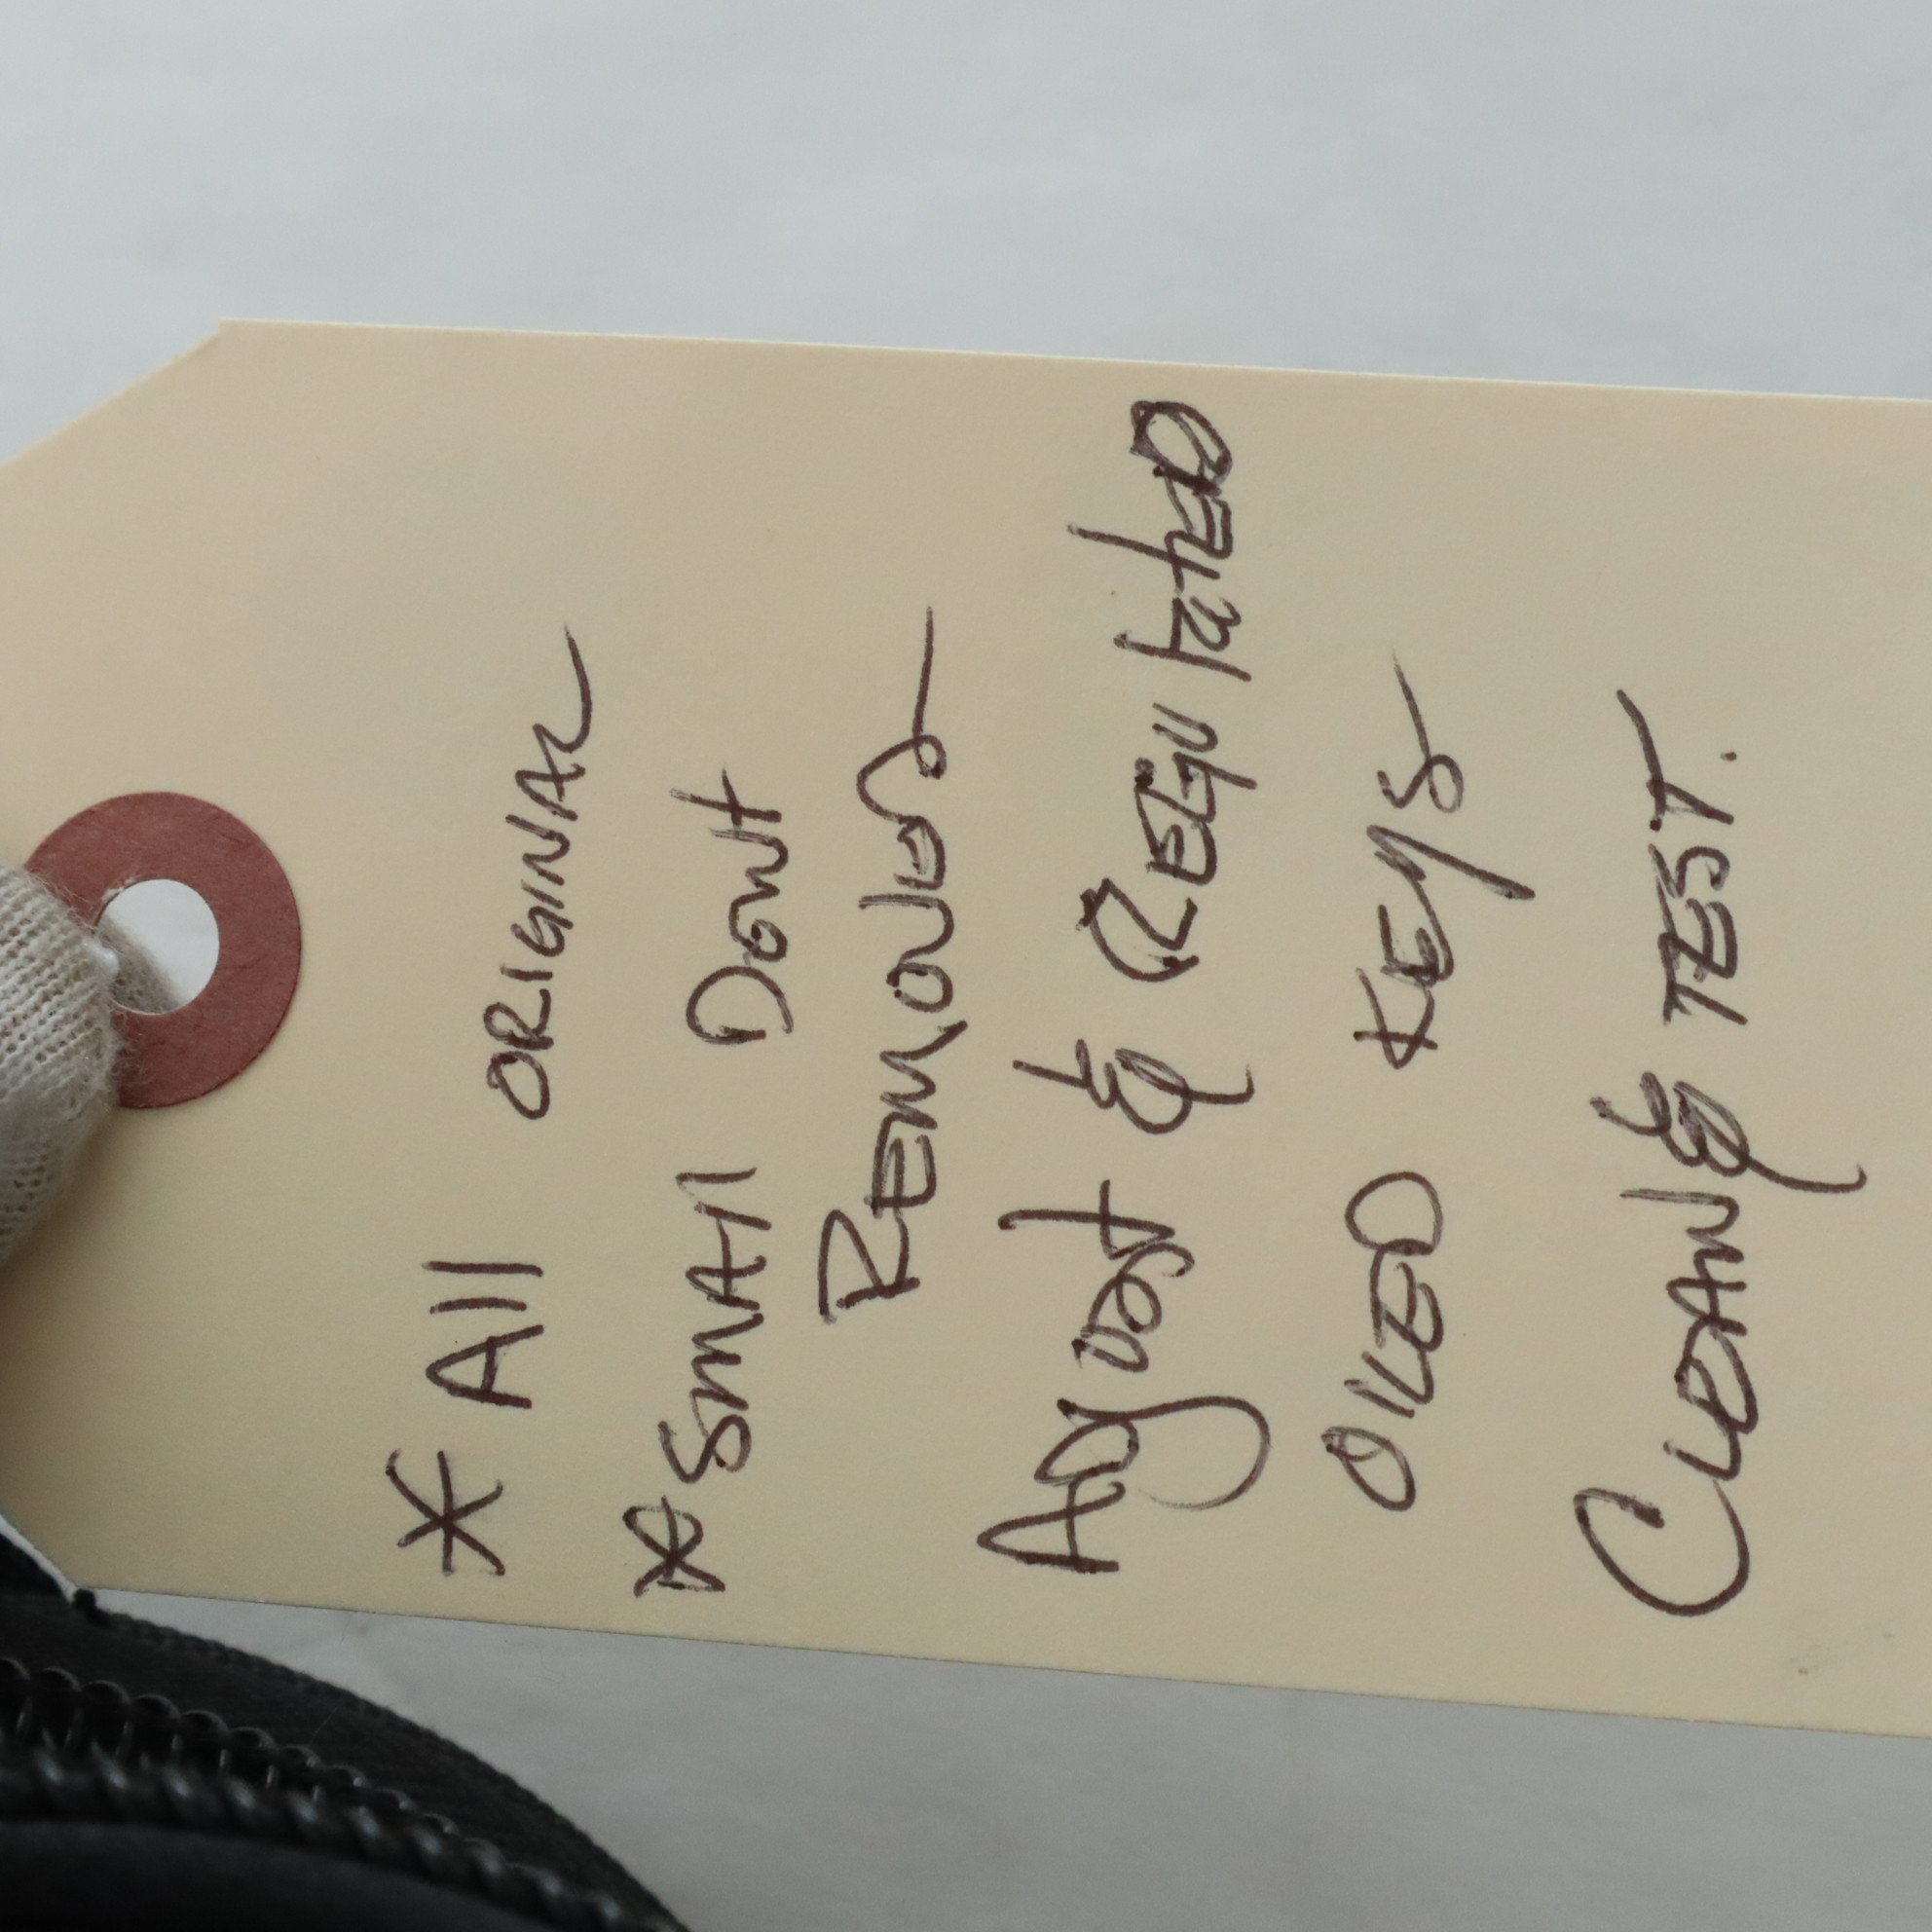 * All ORIGINAL
* SMAll Dent
REMOVED
ADJUST & REGULATED
OILED KEYS
CLEAN & TEST.